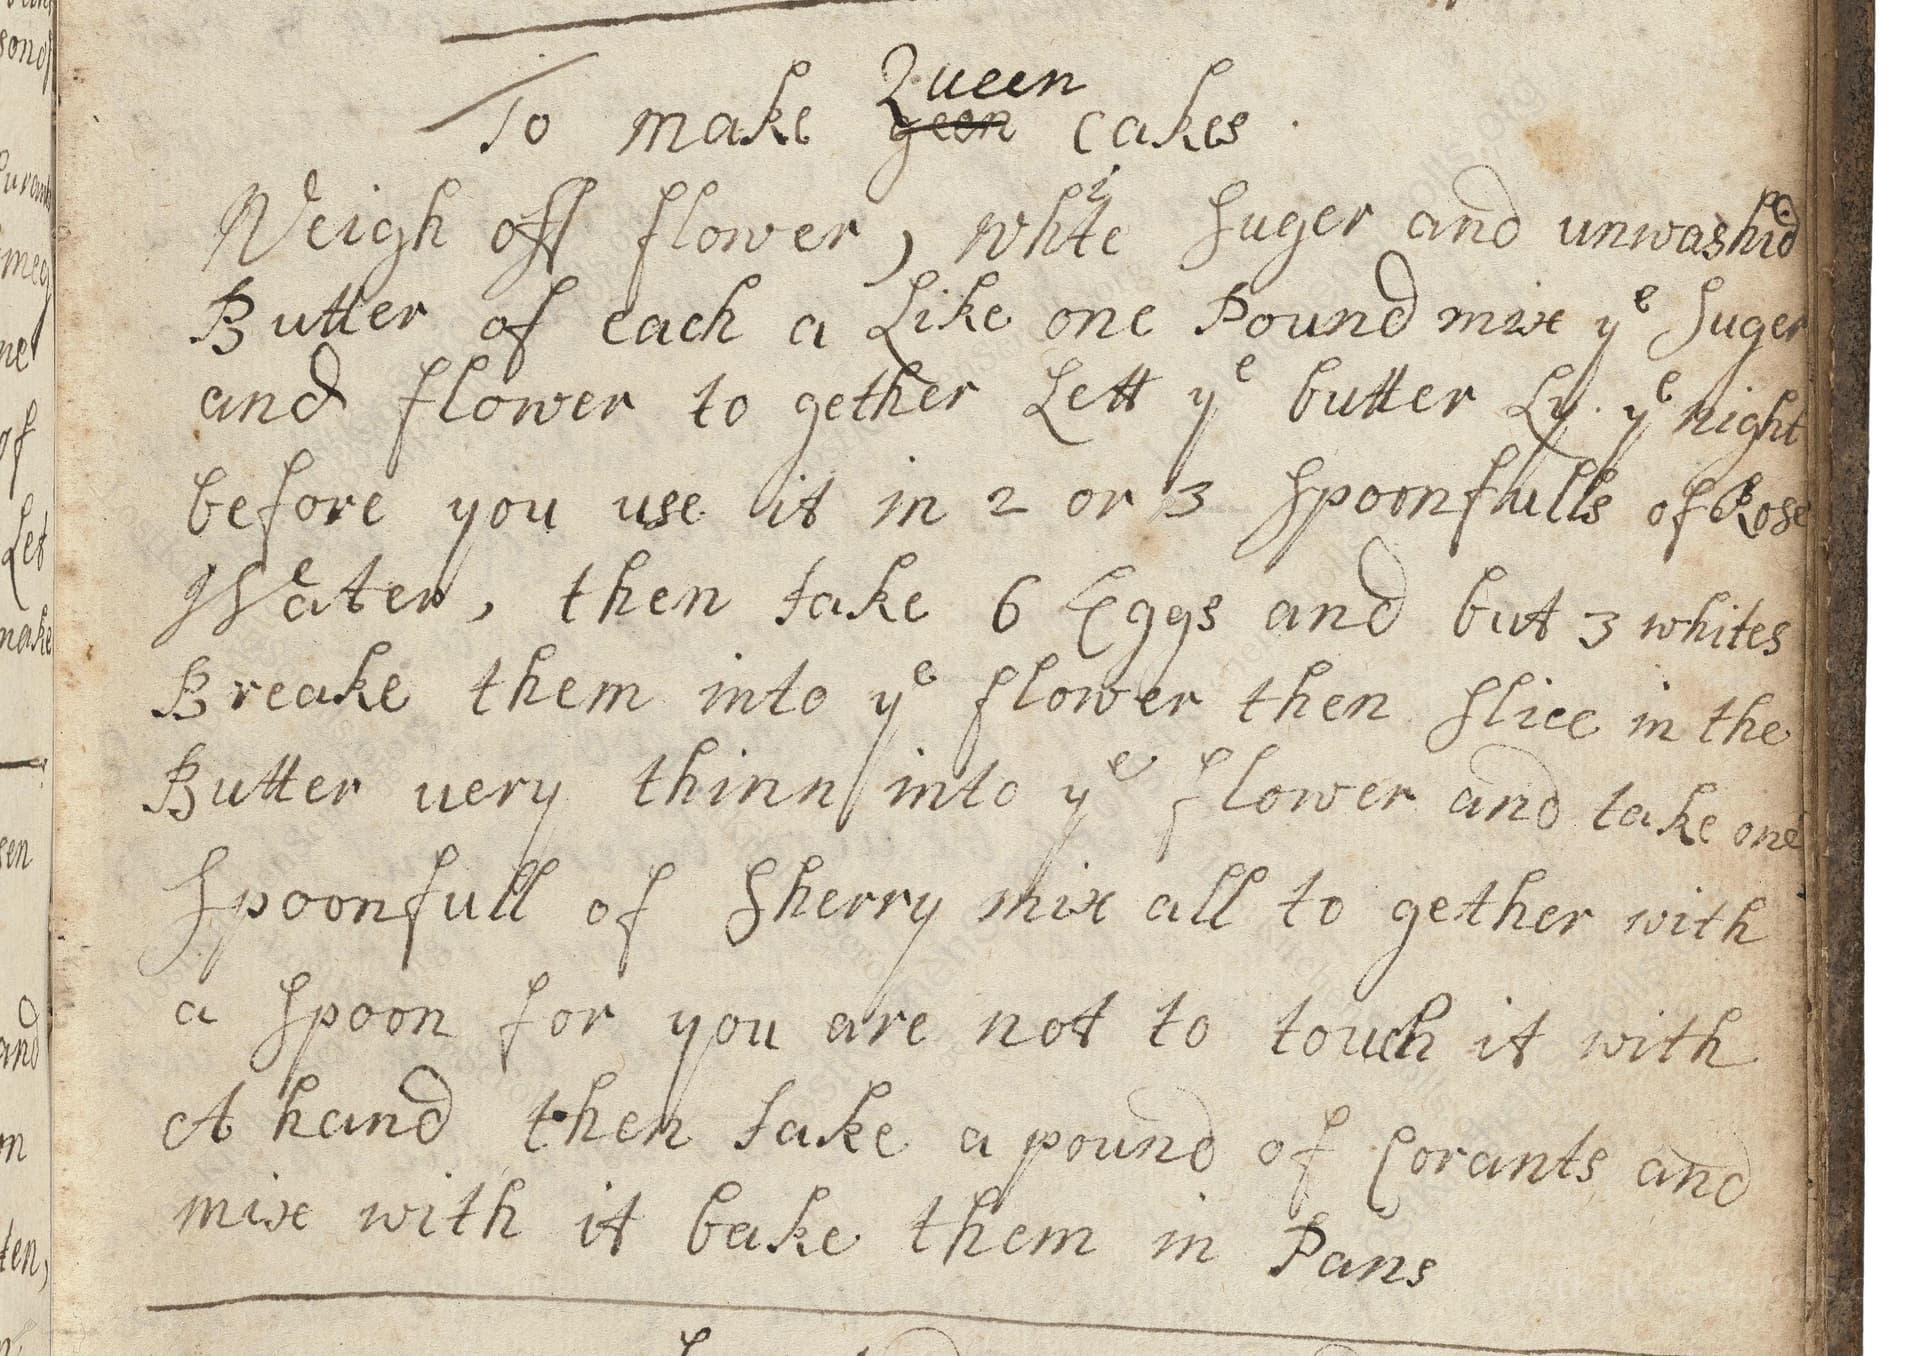 To make Queen geen cakes.
Weigh off flower, white suger and unwashed
Butter of each a Like one Pound mix ye suger
and flower to gether Lett ye butter Ly. ye night
before you use it in 2 or 3 spoonfulls of Rose
Water, then take 6 Eggs and but 3 whites
Breake them into ye flower then slice in the
Butter uery thinn into ye flower and take one
spoonfull of sherry mix all to gether with
a spoon for you are not to touch it with
A hand then take a pound of Corants and
mix with it bake them in Pans